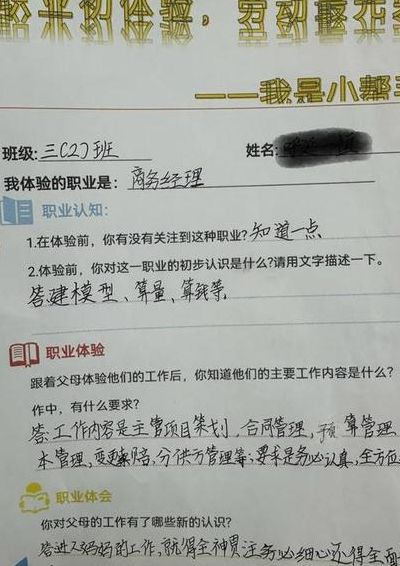 职业初体验，劳动最光
——我是小帮手
班级：三（2）班
姓名：
我体验的职业是：商务经理
职业认知：
1.在体验前，你有没有关注到这种职业？知道一点
2.体验前，你对这一职业的初步认识是什么？请用文字描述一下。
答建模型、算量、算钱等
职业体验
跟着父母体验他们的工作后，你知道他们的主要工作内容是什么？
作中，有什么要求？
答：工作内容是主管项目策划，合同管理，预算管理
本管理，变更索赔，分供方管理等；要求是务必认真，全方面
职业体会
你对父母的工作有了哪些新的认识？
答进入妈妈的工作，就得全神贯注务必细心还得全面